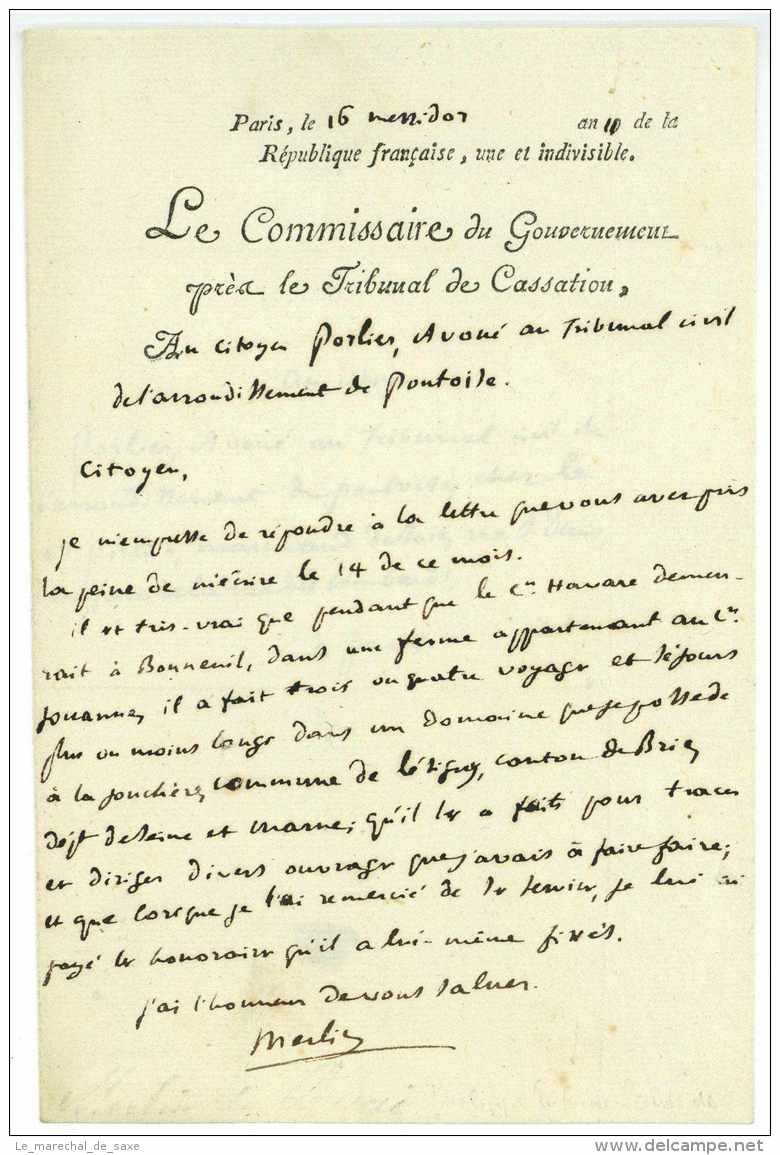 Paris, le 16 messidor an 10 de la
République française, une et indivisible.
Le Commissaire du Gouvernement
près le Tribunal de Cassation,
Au Citoyen Porlier, Avoué au Tribunal civil
de l'arrondissement de Pontoise.
Citoyen,
je m'empresse de répondre à la lettre que vous avez pris
la peine de m'écrire le 14 de ce mois.
il est très-vrai que pendant que le C.en Havare demeu-
rait à Bonneuil, dans une ferme appartenant au C.en
Jouanne, il a fait trois ou quatre voyages et séjours
plus ou moins longs dans un domaine que je possède
à la jonchère, commune de Lésigny, canton de Brie,
dép.t de Seine et Marne; qu'il les a faits pour tracer
et diriger divers ouvrages que j'avais à faire faire;
et que lorsque je l'ai remercié de ses services, je lui ai
payé les honoraires qu'il a lui-même fixés.
j'ai l'honneur de vous saluer.
Merlin
Le_marechal_de_saxe
www.delcampe.net